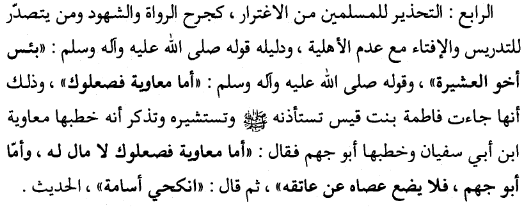 الرابع : التحذير للمسلمين من الاغترار ، كجرح الرواة والشهود ومن يتصدّر
للتدريس والإفتاء مع عدم الأهلية ، ودليله قوله صلى الله عليه وآله وسلم : «بئس
أخو العشيرة» ، وقوله صلى الله عليه وآله وسلم : «أما معاوية فصعلوك» ، وذلك
أنها جاءت فاطمة بنت قيس تستأذنه ﷺ وتستشيره وتذكر أنه خطبها معاوية
ابن أبي سفيان وخطبها أبو جهم فقال : «أما معاوية فصعلوك لا مال له ، وأمّا
أبو جهم ، فلا يضع عصاه عن عاتقه» ، ثم قال : «انكحي أسامة» ، الحديث .